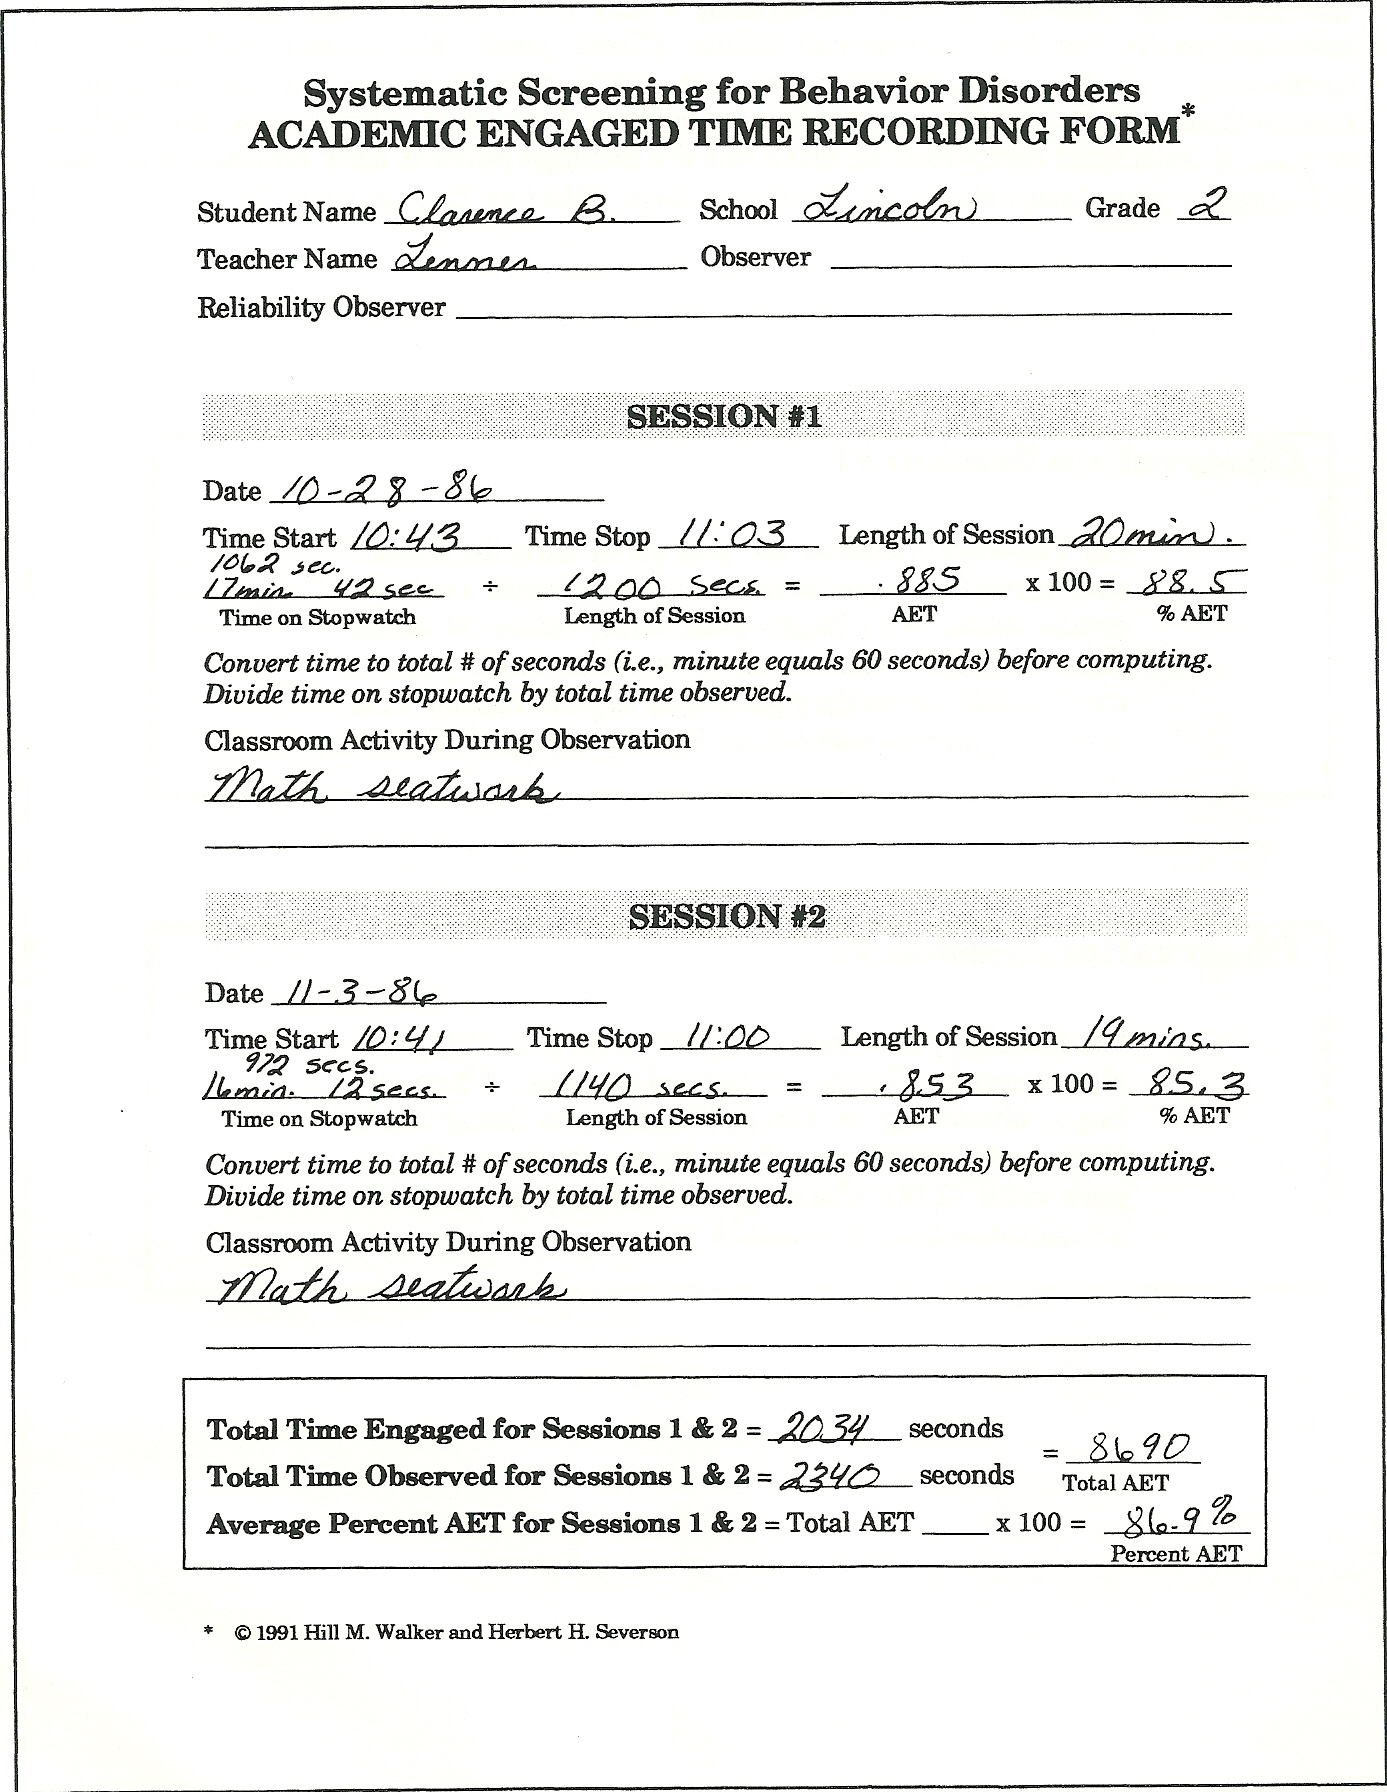 Systematic Screening for Behavior Disorders
ACADEMIC ENGAGED TIME RECORDING FORM*
Student Name Clarence B. School Lincoln Grade 2
Teacher Name Observer
Reliability Observer
SESSION #1
Date 10-28-86
Time Start 10:43 Time Stop 11:03 Length of Session 20 min.
1062 sec.
17 min. 42 sec ÷ 1200 secs. = .885 x 100 = 88.5
Time on Stopwatch Length of Session AET % AET
Convert time to total # of seconds (i.e., minute equals 60 seconds) before computing.
Divide time on stopwatch by total time observed.
Classroom Activity During Observation
Math seatwork
SESSION #2
Date 11-3-86
Time Start 10:41 Time Stop 11:00 Length of Session 19 mins.
972 secs.
16 min. 12 secs. ÷ 1140 secs. = .853 x 100 = 85.3
Time on Stopwatch Length of Session AET % AET
Convert time to total # of seconds (i.e., minute equals 60 seconds) before computing.
Divide time on stopwatch by total time observed.
Classroom Activity During Observation
Math seatwork
Total Time Engaged for Sessions 1 & 2 = 2034 seconds
= 8690
Total Time Observed for Sessions 1 & 2 = 2340 seconds Total AET
Average Percent AET for Sessions 1 & 2 = Total AET ____ x 100 = 86.9%
Percent AET
* © 1991 Hill M. Walker and Herbert H. Severson